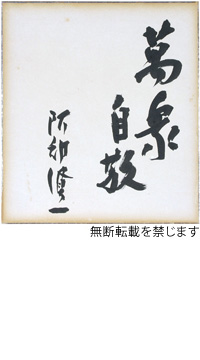 萬
自
阿部賢一
無断転載を禁じます